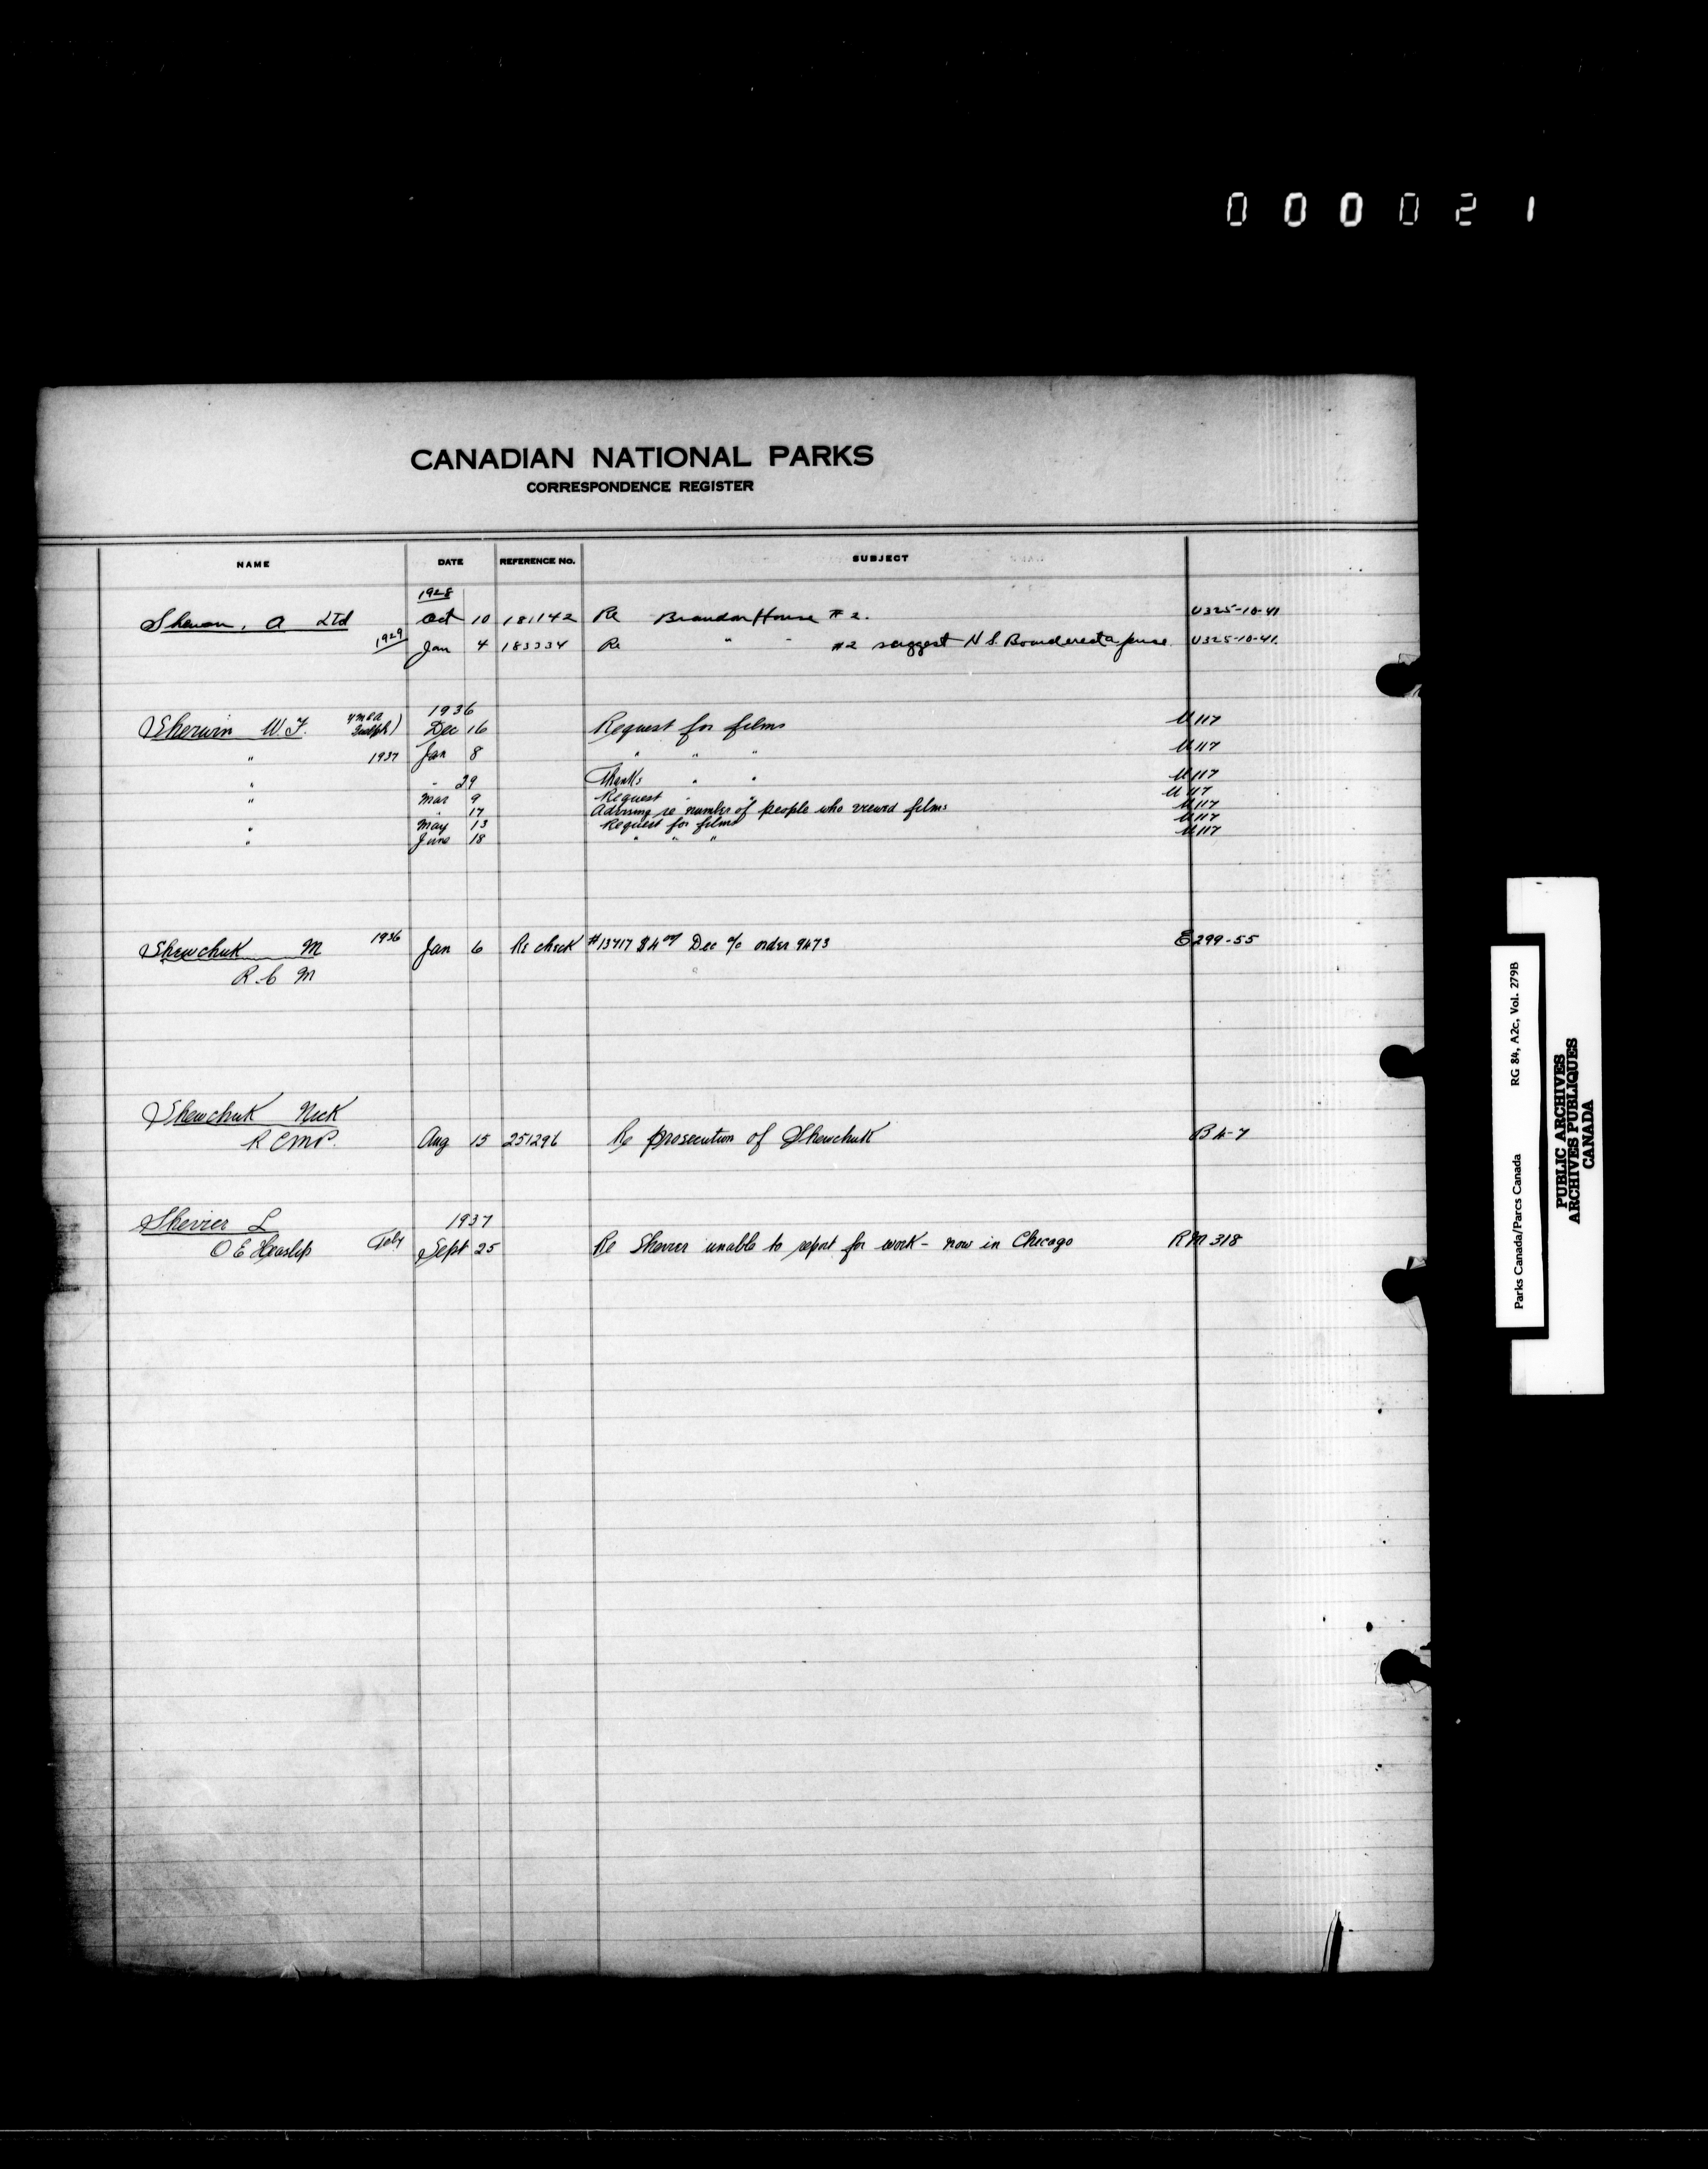 000021
CANADIAN NATIONAL PARKS
CORRESPONDENCE REGISTER
NAME DATE REFERENCE NO. SUBJECT
1928
A Ltd Oct 10 181142 Re Brandon House #2. U325-10-41
1929 Jan 4 183334 Re " " #2 suggest H.S. Board erect a fence U325-10-41.
1936
Sherwin W.F. YMCA Guelph) Dec 16 Request for films U117
" 1937 Jan 8 " " " U117
" " 29 Thanks " " U117
" Mar 9 Request " " U117
" 17 Advising re number of people who viewed films U117
" May 13 Request for films U117
" June 18 " " " U117
Shewchuk M 1936 Jan 6 Re check #13717 Dec a/c order 9473 E299-55
R.C M
Shewchuk Nick
R C M P. Aug 15 251296 Re prosecution of Shewchuk B4-7
Shevier L 1937
O E Heaslip Sept 25 Re Shevier unable to report for work - now in Chicago RM318
Parks Canada/Parcs Canada RG 84, A2c, Vol. 279B
PUBLIC ARCHIVES
ARCHIVES PUBLIQUES
CANADA